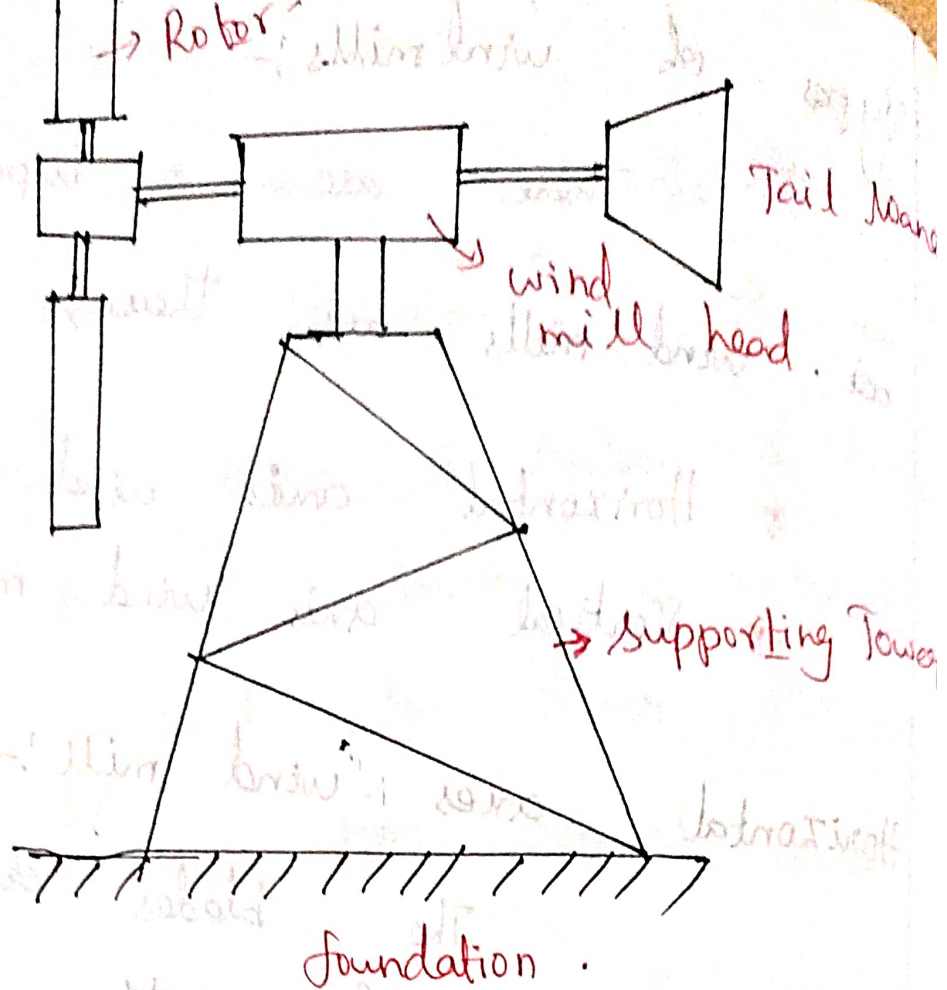 → Rotor
Tail
wind
mill head.
→ supporting Tower
foundation.